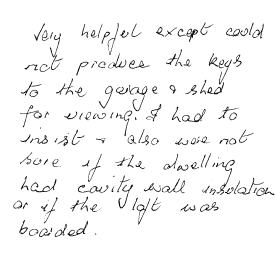 Very helpful except could
not produce the keys
to the garage & shed
for viewing. I had to
insist & also were not
sure if the dwelling
had cavity wall insulation
or if the loft was
boarded.